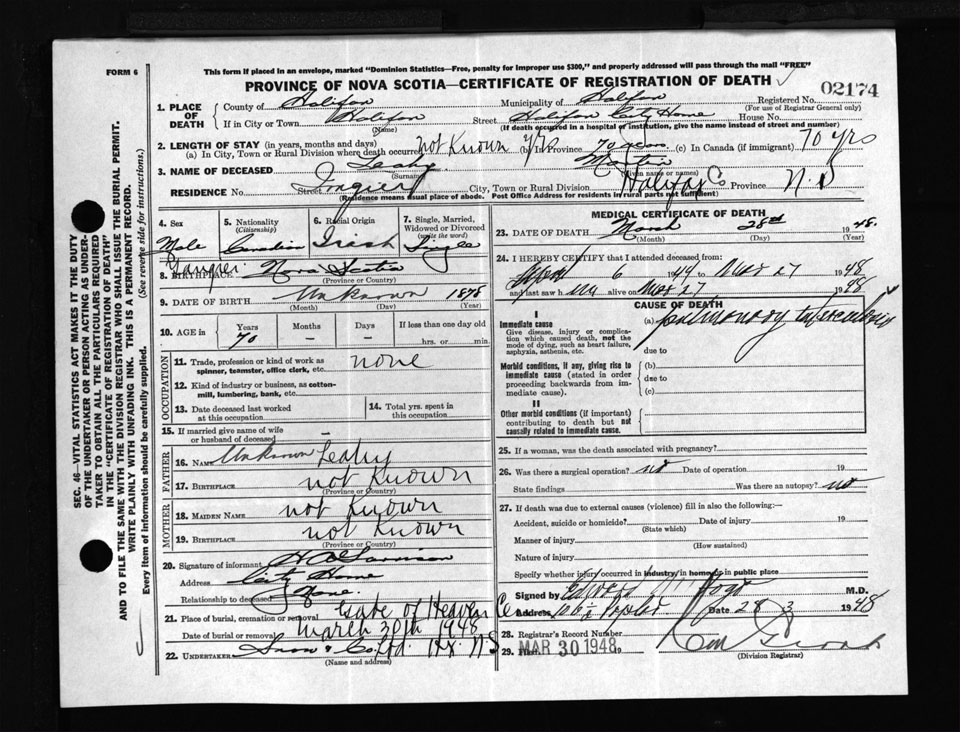 FORM 6
This form if placed in an envelope, marked "Dominion Statistics—Free, penalty for improper use $300," and properly addressed will pass through the mail "FREE"
PROVINCE OF NOVA SCOTIA—CERTIFICATE OF REGISTRATION OF DEATH
02174
1. PLACE OF DEATH
County of Halifax Municipality of Halifax Registered No.
(For use of Registrar General only)
If in City or Town Halifax Street Halifax City Home House No.
(Name) (If death occurred in a hospital or institution, give the name instead of street and number)
2. LENGTH OF STAY (in years, months and days)
(a) In City, Town or Rural Division where death occurred not Known yrs (b) In Province 70 years (c) In Canada (if immigrant) 70 yrs
3. NAME OF DECEASED Leahy Martin
(Surname) (Given name or names)
RESIDENCE No. Street City, Town or Rural Division Halifax Co. Province N.S
(Residence means usual place of abode. Post Office Address for residents in rural parts not sufficient)
4. Sex Male
5. Nationality (Citizenship) Canadian
6. Racial Origin Irish
7. Single, Married, Widowed or Divorced (write the word) Single
8. BIRTHPLACE Nova Scotia
(Province or Country)
9. DATE OF BIRTH Unknown 1878
(Month) (Day) (Year)
10. AGE in Years Months Days If less than one day old
70 — — hrs. or min.
OCCUPATION
11. Trade, profession or kind of work as spinner, teamster, office clerk, etc. none
12. Kind of industry or business, as cotton-mill, lumbering, bank, etc.
13. Date deceased last worked at this occupation
14. Total yrs. spent in this occupation
15. If married give name of wife or husband of deceased —
FATHER
16. NAME Unknown Leahy
17. BIRTHPLACE not Known
(Province or Country)
MOTHER
18. MAIDEN NAME not Known
19. BIRTHPLACE not Known
(Province or Country)
20. Signature of informant
Address City Home
Relationship to deceased None.
21. Place of burial, cremation or removal Gate of Heaven
Date of burial or removal March 30th 1948
22. UNDERTAKER Snow & Co. Ltd. Hx. N.S
(Name and address)
MEDICAL CERTIFICATE OF DEATH
23. DATE OF DEATH March 28th 1948.
(Month) (Day) (Year)
24. I HEREBY CERTIFY that I attended deceased from:
6 1944 to Mar 27 1948
and last saw him alive on Mar 27 1948
CAUSE OF DEATH
I
Immediate cause (a) pulmonary tuberculosis
Give disease, injury or complication which caused death, not the mode of dying, such as heart failure, asphyxia, asthenia, etc.
due to
Morbid conditions, if any, giving rise to immediate cause (stated in order proceeding backwards from immediate cause)
(b)
due to
(c)
II
Other morbid conditions (if important) contributing to death but not causally related to immediate cause.
25. If a woman, was the death associated with pregnancy?
26. Was there a surgical operation? no Date of operation 19
State findings Was there an autopsy? no
27. If death was due to external causes (violence) fill in also the following:—
Accident, suicide or homicide? Date of injury 19
(State which)
Manner of injury
(How sustained)
Nature of injury
Specify whether injury occurred in industry, in home, or in public place
Signed by M.D.
Address Date 28 3 1948
28. Registrar's Record Number
29. Filed MAR 30 1948 19
(Division Registrar)
SEC. 46—VITAL STATISTICS ACT MAKES IT THE DUTY
OF THE UNDERTAKER OR PERSON ACTING AS UNDER-
TAKER TO OBTAIN ALL THE PARTICULARS REQUIRED
IN THE "CERTIFICATE OF REGISTRATION OF DEATH"
AND TO FILE THE SAME WITH THE DIVISION REGISTRAR WHO SHALL ISSUE THE BURIAL PERMIT.
WRITE PLAINLY WITH UNFADING INK. THIS IS A PERMANENT RECORD.
Every item of information should be carefully supplied. (See reverse side for instructions.)